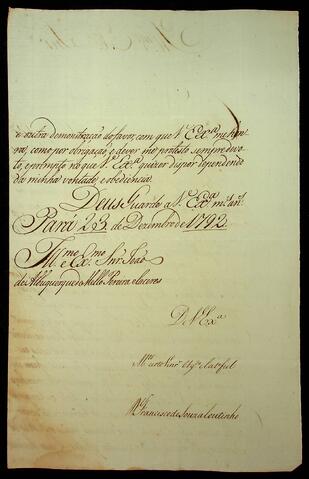 e outra demonstração do favor, com que V.ª Ex.ª me hon-
ra, como por obrigação, e dever me protesto sempre devo-
to, e prompto no que V.ª Ex.ª quizer dispor dependendo
da minha vontade, e obediencia.
Deus Guarde a V.ª Ex.ª m.s an.s
Pará 23 de Dezembro de 1792
Ill.mo e Ex.mo Snr. João
de Albuquerque de Mello Pereira e Caceres
De V. Ex.ª
D. Francisco de Souza Coutinho